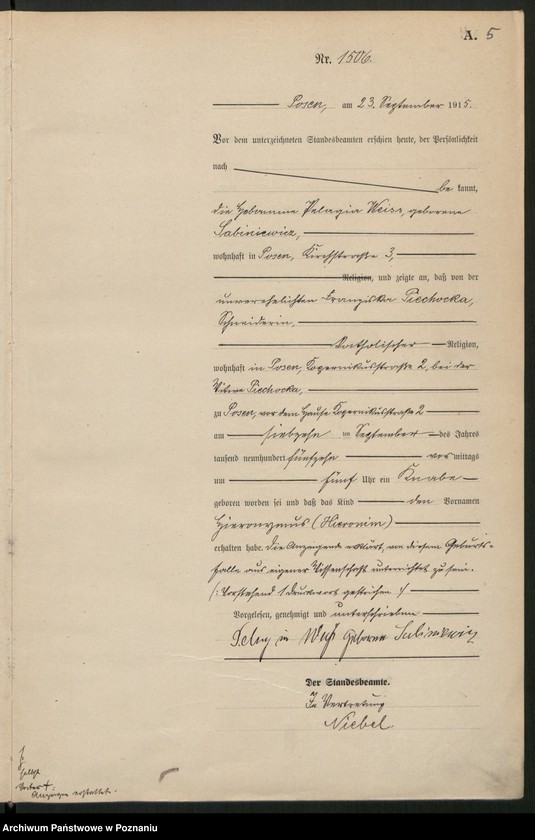 A. 5
Nr. 1506.
Posen, am 23. September 1915.
Vor dem unterzeichneten Standesbeamten erschien heute, der Persönlichkeit
nach
be kannt,
die Hebamme Pelagia Weiss, geborene
Sabiniewicz,
wohnhaft in Posen, Kirchstraße 3,
Religion, und zeigte an, daß von der
unverehelichten Franziska Piechocka,
Schneiderin,
katholischer Religion,
wohnhaft in Posen, Kopernikusstraße 2, bei der
Witwe Piechocka,
zu Posen, vor dem Hause Kopernikusstraße 2
am siebzehn ten September des Jahres
tausend neunhundert fünfzehn vor mittags
um fünf Uhr ein Knabe
geboren worden sei und daß das Kind den Vornamen
Hieronymus (Hieronim)
erhalten habe. Die Anzeigende erklärt, von diesem Geburts-
falle aus eigener Wissenschaft unterrichtet zu sein.
(: Vorstehend 1 Druckwort gestrichen :)
Vorgelesen, genehmigt und unterschrieben
geborene Sabiniewicz
Der Standesbeamte.
In Vertretung
Niebel.
Anzeigen erstattet.
Archiwum Państwowe w Poznaniu